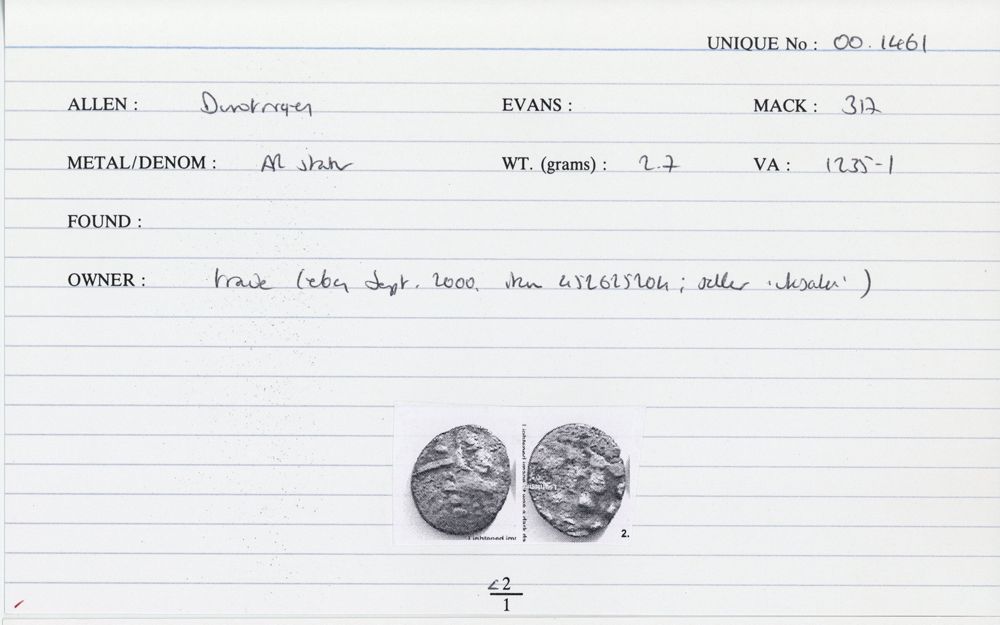 UNIQUE No : 00.1461
ALLEN : Durotrigen EVANS : MACK : 317
METAL/DENOM : AR stater WT. (grams) : 2.7 VA : 1235-1
FOUND :
OWNER : trade (ebay Sept. 2000, item 452625204; seller 'uksales')
Lightened
2.
<2
1